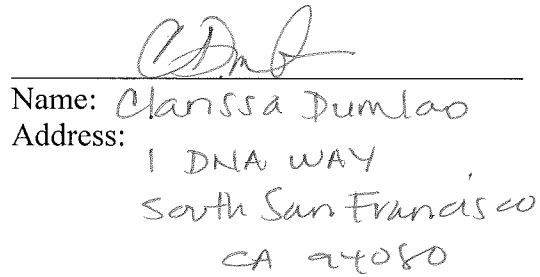 Name: Clarissa Dumlao
Address:
1 DNA WAY
South San Francisco
CA 94080